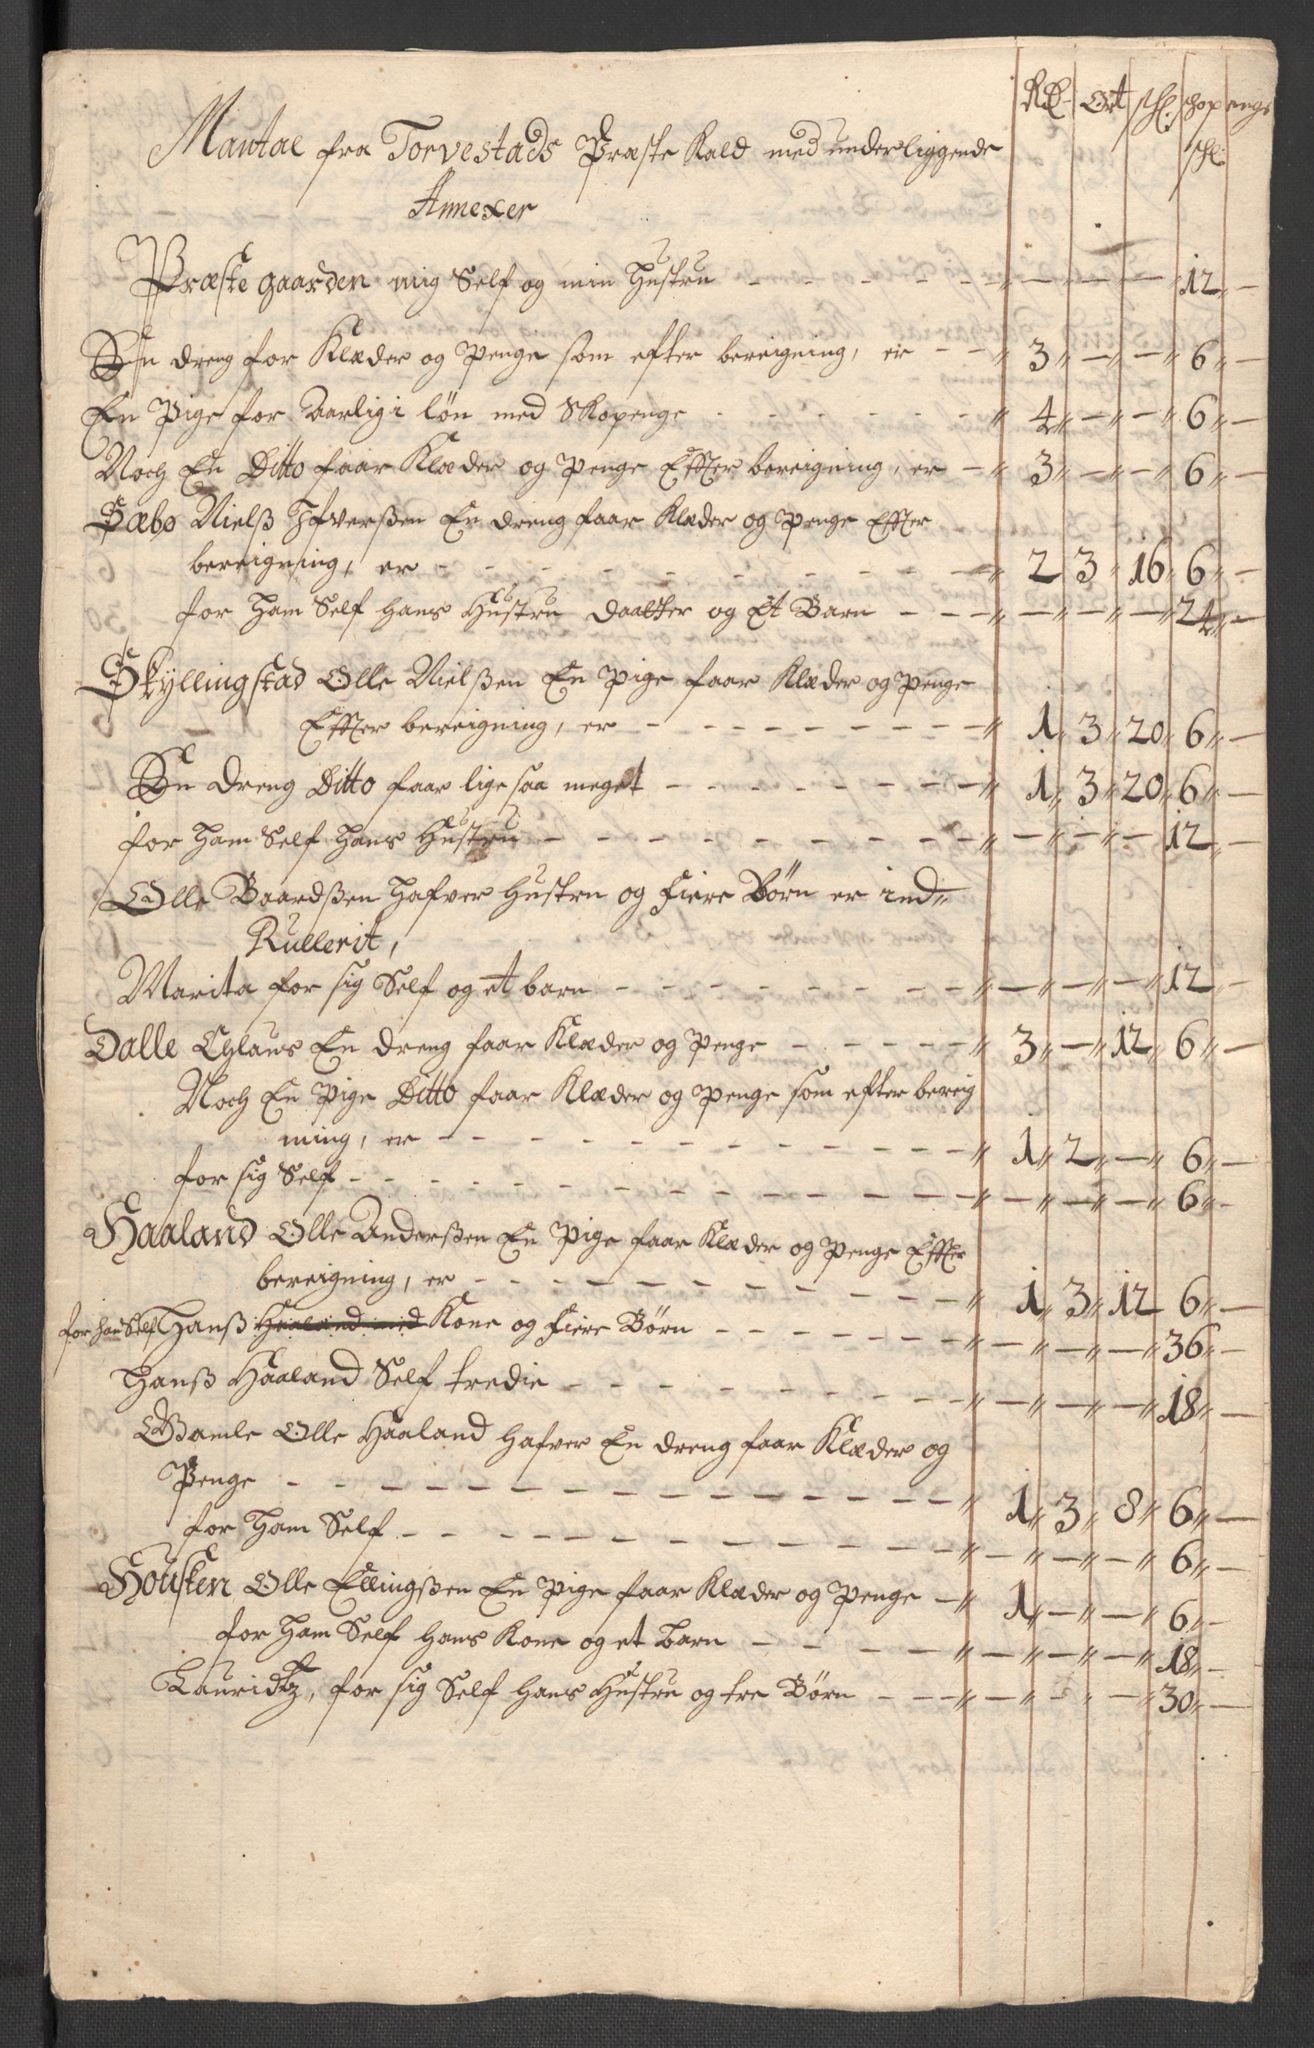 Rd. Ort skl. skopenge
skl.
Mantal fra Torvestads Præste Kald med underliggende
Annexer
Præste gaarden mig Self og min Hustru — — — 12 —
En dreng for Klæder og Penge som efter bereigning, er — 3 — — 6 —
En Pige for Aarlig i løn med Skopenge — 4 — — 6 —
Noch En Ditto faar Klæder og Penge Effter bereigning, er — 3 — — 6 —
Sæbø Nielß Ifverßen En dreng faar Klæder og Penge Effter
bereigning, er — 2 3 16 6 —
for Ham Self hans Hustru Daatter og Et Barn — — — — 24 —
Skyllingstad Olle Nielßen En Pige faar Klæder og Penge
Effter bereigning, er — 1 3 20 6 —
En dreng Ditto faar lige saa meget — 1 3 20 6 —
for Ham Self Hans Hustru — — — — 12 —
Olle Baardßen Hafver Hustru og Fiere Børn er ind
Rullerit,
Marita for sig Self og et barn — — — — 12 —
Dalle En dreng faar Klæder og Penge — 3 — 12 6 —
Noch En Pige Ditto faar Klæder og Penge som efter bereig
ning, er — 1 2 — 6 —
for sig Self — — — — 6 —
Haaland Olle Anderßen En Pige faar Klæder og Penge Effter
bereigning, er — 1 3 12 6 —
for ham Self Hanß Haaland med Kone og Fiere Børn — — — — 36 —
Hanß Haaland Self tredie — — — — 18 —
Gamle Olle Haaland hafver En dreng faar Klæder og
Penge — 1 3 8 6 —
for Ham Self — — — — 6 —
Housken Olle Ellingßen En Pige faar Klæder og Penge — 1 — — 6 —
for Ham Self hans Kone og et barn — — — — 18 —
Lauridtz, for sig Self hans Hustru og tre Børn — — — — 30 —